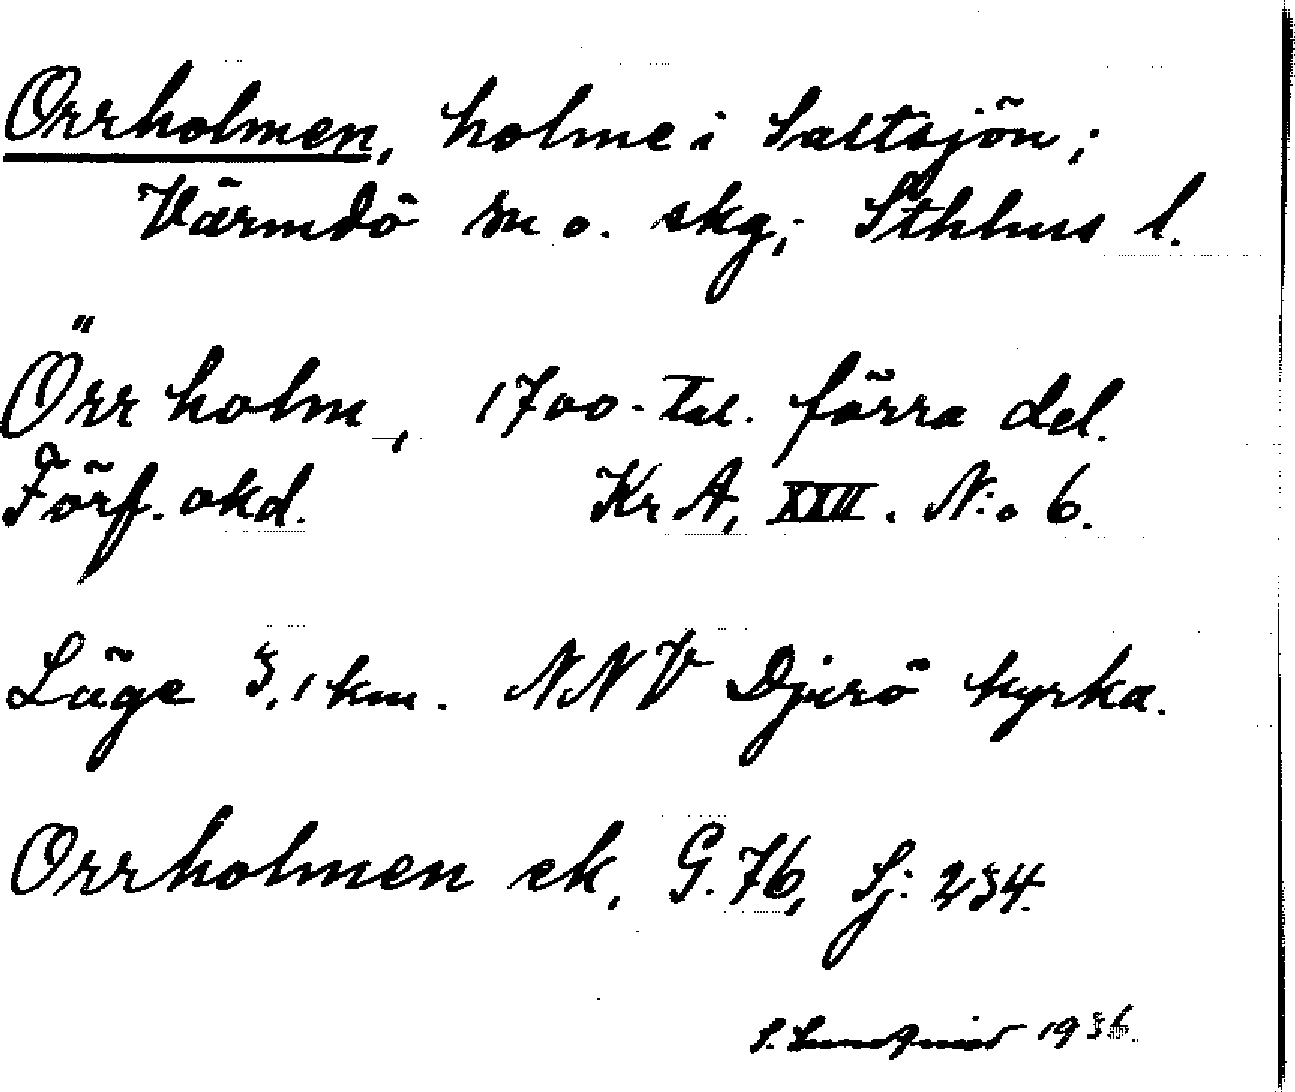 Orrholmen, holme i Saltsjön;
Värmdö sn o. skg; Sthlms l.
Örrholm, 1700-tal. förra del.
Förf. okd. Kr A, XXII. N:o 6.
Läge 3,1 km. NNV Djurö kyrka.
Orrholmen ek, G. 76, Sj: 234.
S. Lundqvist 1936.